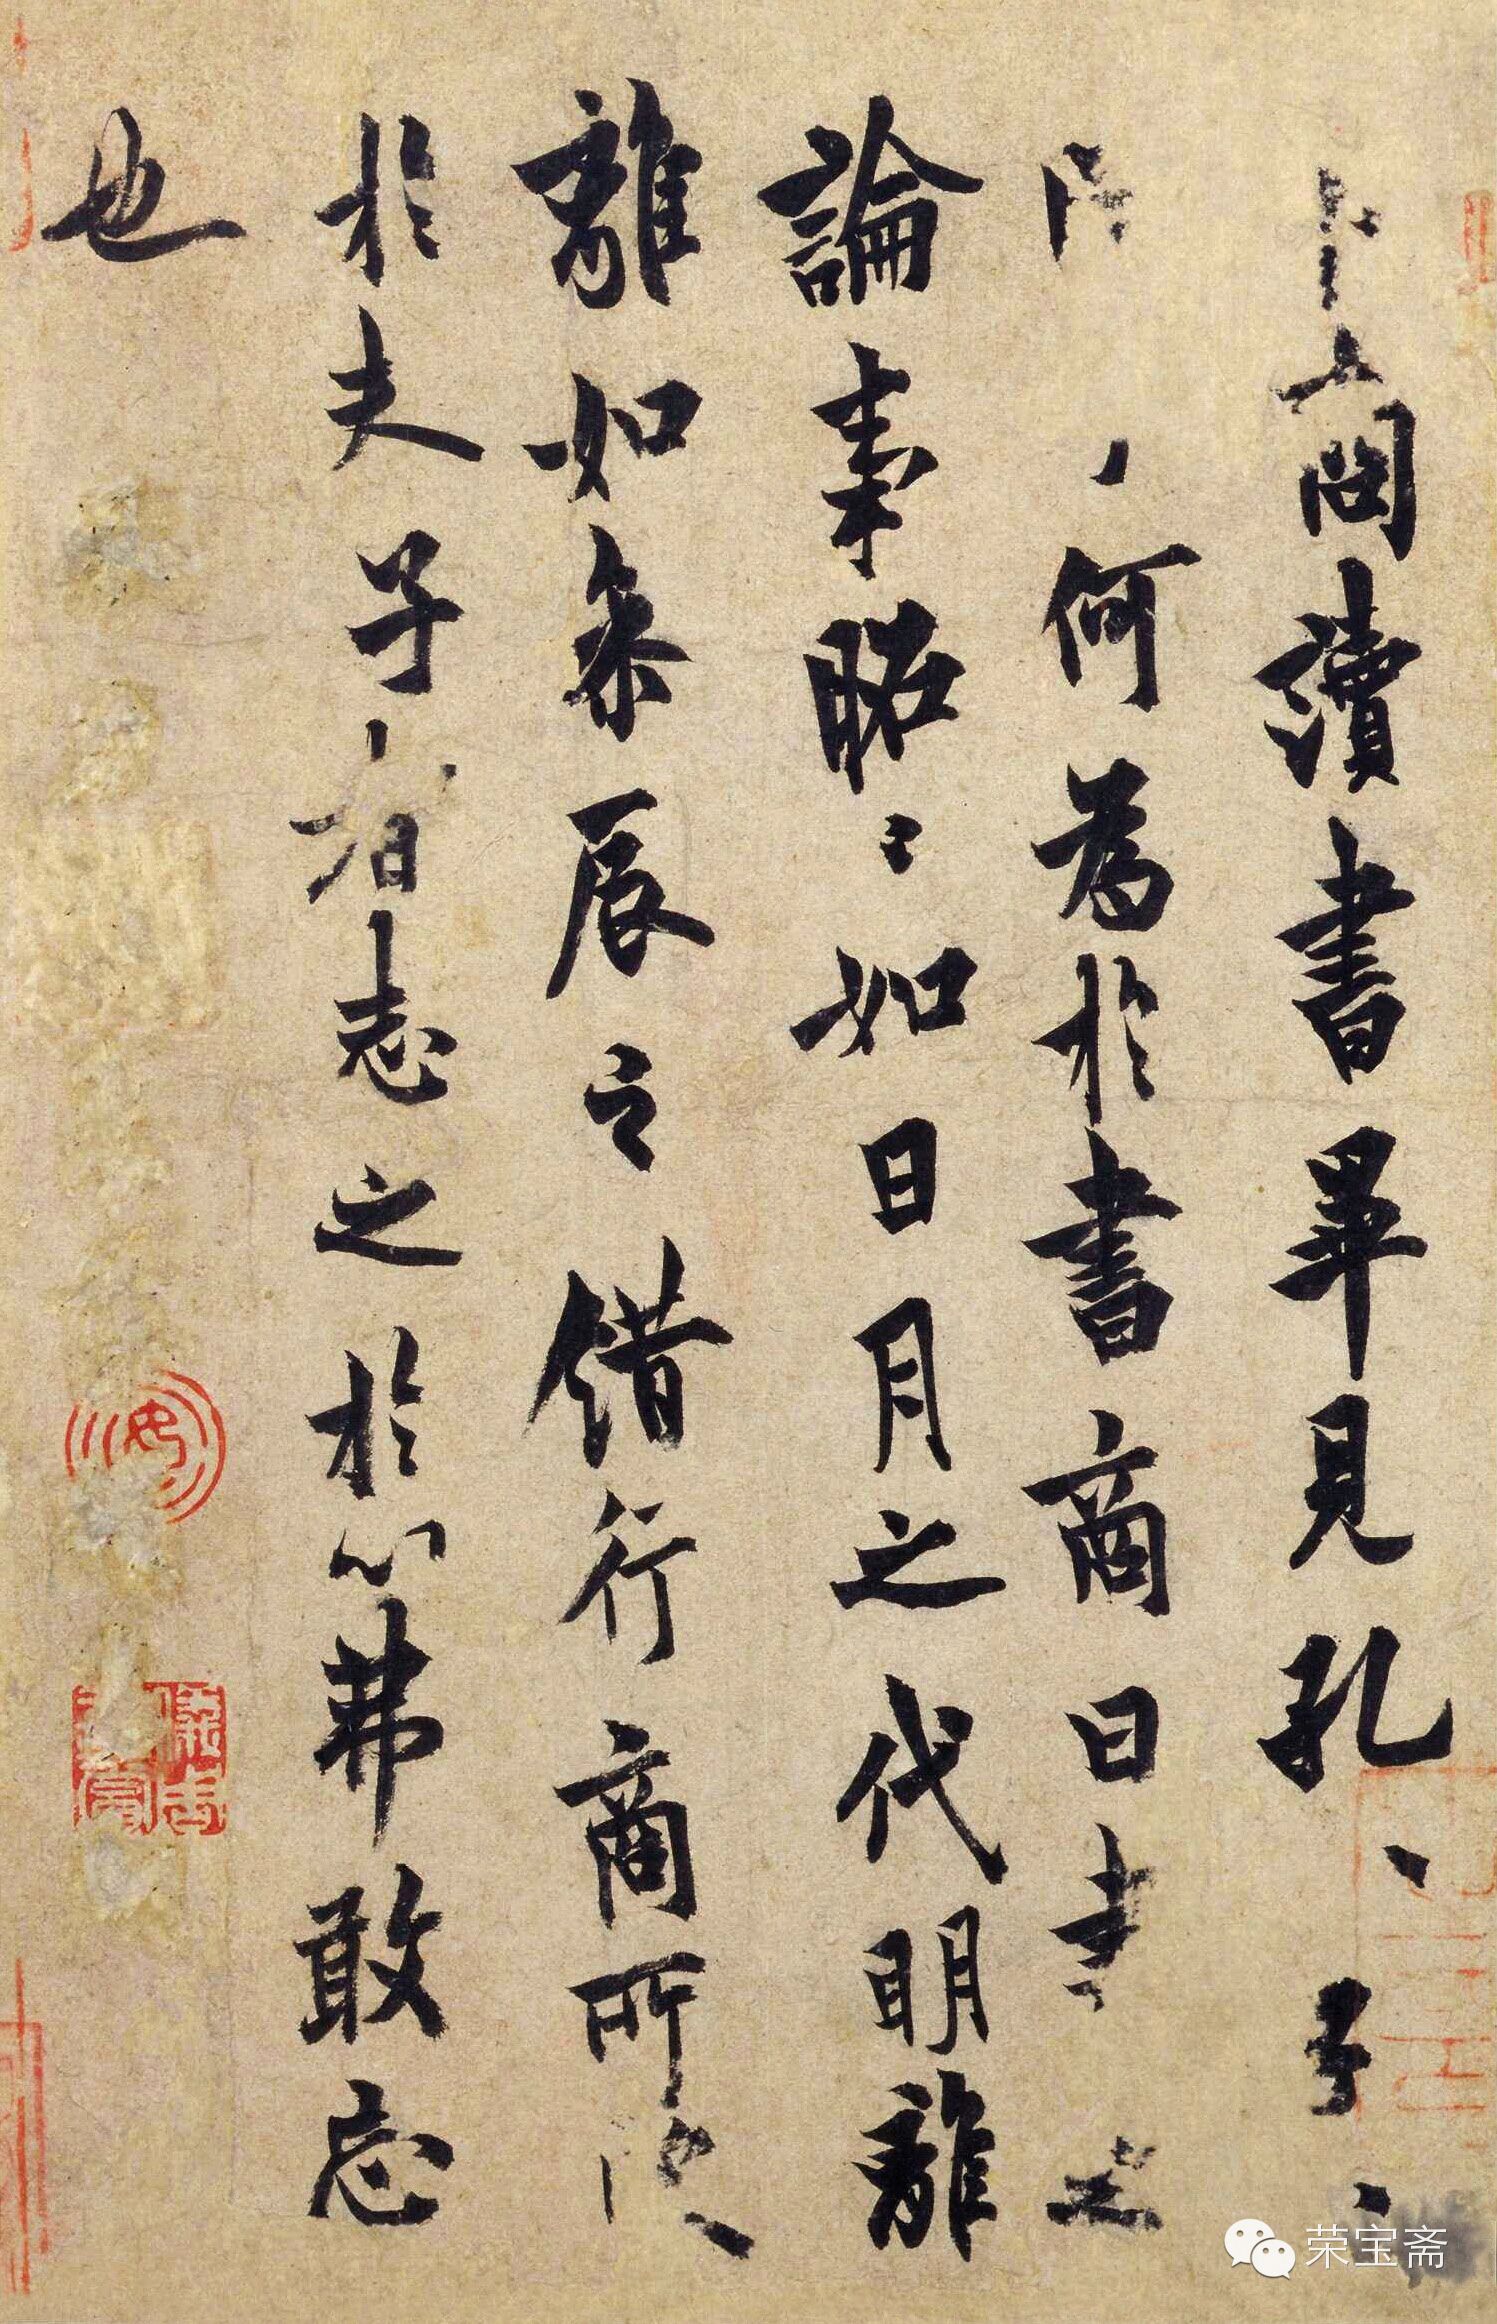 卜商讀書畢見孔〻子〻
何為於書商曰書之
論事昭〻如日月之代明離
離如參辰之錯行商所
於夫子者志之於心弗敢忘
也
荣宝斋